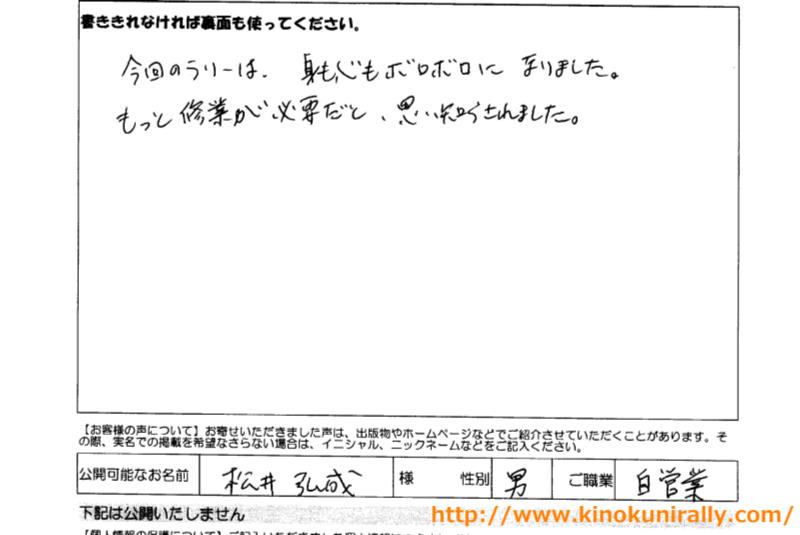 書ききれなければ裏面も使ってください。
今回のラリーは、身も心もボロボロに なりました。
もっと修業が必要だと、思い知らされました。
【お客様の声について】お寄せいただきました声は、出版物やホームページなどでご紹介させていただくことがあります。そ
の際、実名での掲載を希望なさらない場合は、イニシャル、ニックネームなどをご記入ください。
公開可能なお名前 松井 弘成 様 性別 男 ご職業 自営業
下記は公開いたしません
http://www.kinokunirally.com/